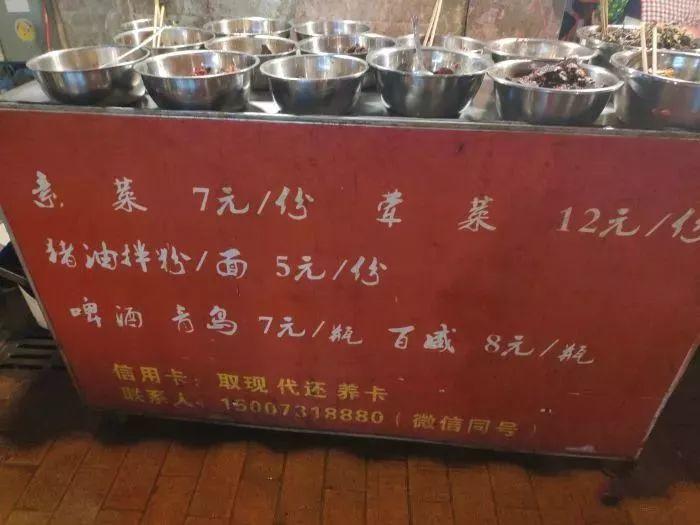 素菜 7元/份 荤菜 12元/份
猪油拌粉/面 5元/份
啤酒 青岛 7元/瓶 百威 8元/瓶
信用卡：取现代还养卡
联系人：15007318880（微信同号）